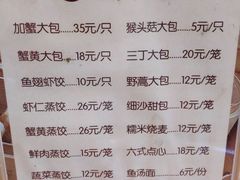 加蟹大包......35元/只
猴头菇大包......5元/只
蟹黄大包......18元/只
三丁大包......20元/笼
鱼翅虾饺......10元/只
野蔬大包......12元/笼
虾仁蒸饺......26元/笼
细沙甜包......12元/笼
蟹黄蒸饺......26元/笼
糯米烧麦......12元/笼
鲜肉蒸饺......15元/笼
六式点心......18元/笼
蔬菜蒸饺......12元/笼
鱼汤面......6元/份